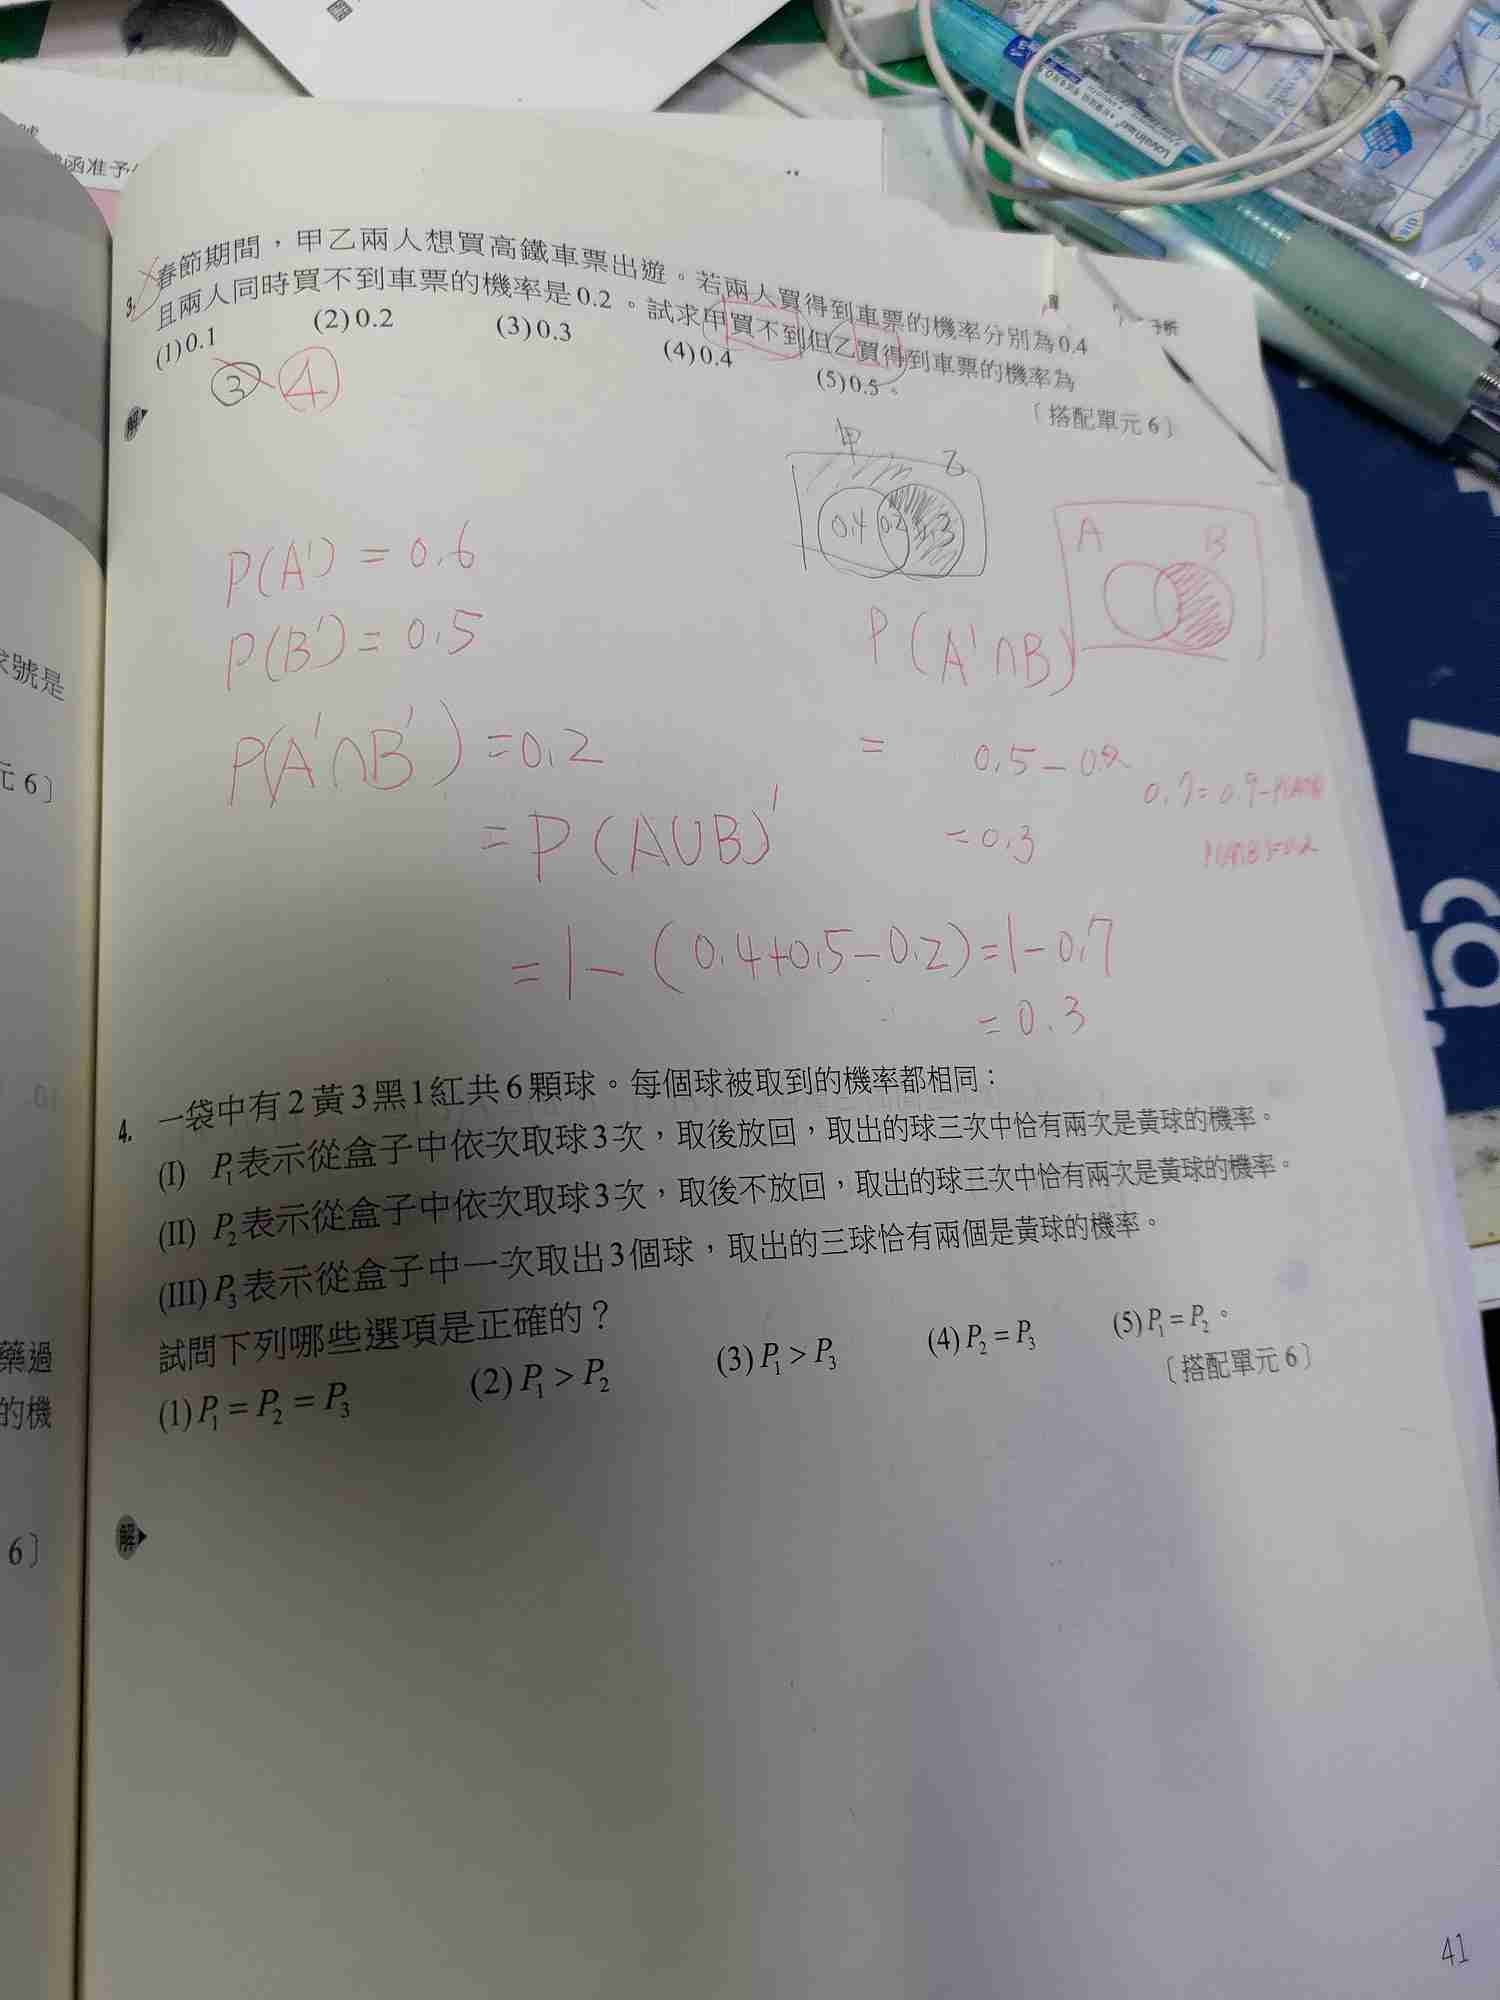 函准予
春節期間，甲乙兩人想買高鐵車票出遊。若兩人買得到車票的機率分別為0.4
3.
且兩人同時買不到車票的機率是0.2。試求甲買不到但乙買得到車票的機率為
(1)0.1 (2)0.2 (3)0.3 (4)0.4 (5)0.5。
〔搭配單元6〕
③ ④
解
甲 乙
0.4 0.2 0.3
A B
P(A')=0.6
P(B')=0.5
P(A'∩B)
P(A'∩B')=0.2
= 0.5-0.2
=0.3
=P(A∪B)'
=1-(0.4+0.5-0.2)=1-0.7
=0.3
4. 一袋中有2黃3黑1紅共6顆球。每個球被取到的機率都相同：
(I) P₁表示從盒子中依次取球3次，取後放回，取出的球三次中恰有兩次是黃球的機率。
(II) P₂表示從盒子中依次取球3次，取後不放回，取出的球三次中恰有兩次是黃球的機率。
(III) P₃表示從盒子中一次取出3個球，取出的三球恰有兩個是黃球的機率。
試問下列哪些選項是正確的？
(1) P₁ = P₂ = P₃ (2) P₁ > P₂ (3) P₁ > P₃ (4) P₂ = P₃ (5) P₁ = P₂。
〔搭配單元6〕
解
41
球號是
元6〕
藥過
的機
6〕
ca